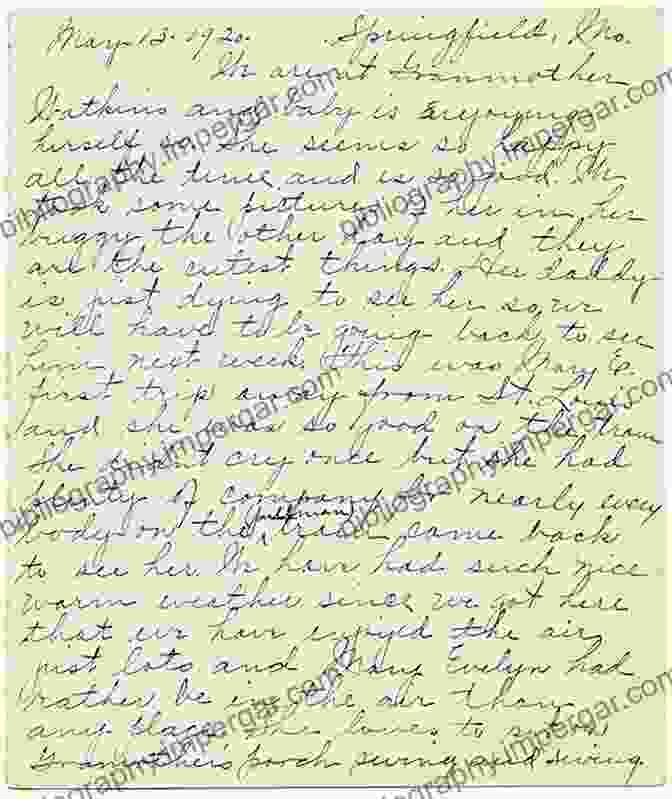 May 13 - 1920. Springfield, Mo.
We are at Granmother
Watkins and baby is enjoying
herself so. She seems so happy
all the time and is so good. We
took some pictures of her in her
buggy the other day and they
are the cutest things. Her daddy
is just dying to see her so we
will have to be going back to see
him next week. This was Mary E.
first trip away from St. Louis
and she was so good on the train
She didn't cry once but she had
plenty of company for nearly every
body on the (pullman) train came back
to see her. We have had such nice
warm weather since we got here
that we have enjoyed the air
just lots and Mary Evelyn had
rather be in the air than
any place. She loves to sit on
Granmother's porch swing and swing
bibliography.impergar.com
bibliography.impergar.com
bibliography.impergar.com
bibliography.impergar.com
bibliography.impergar.com
bibliography.impergar.com